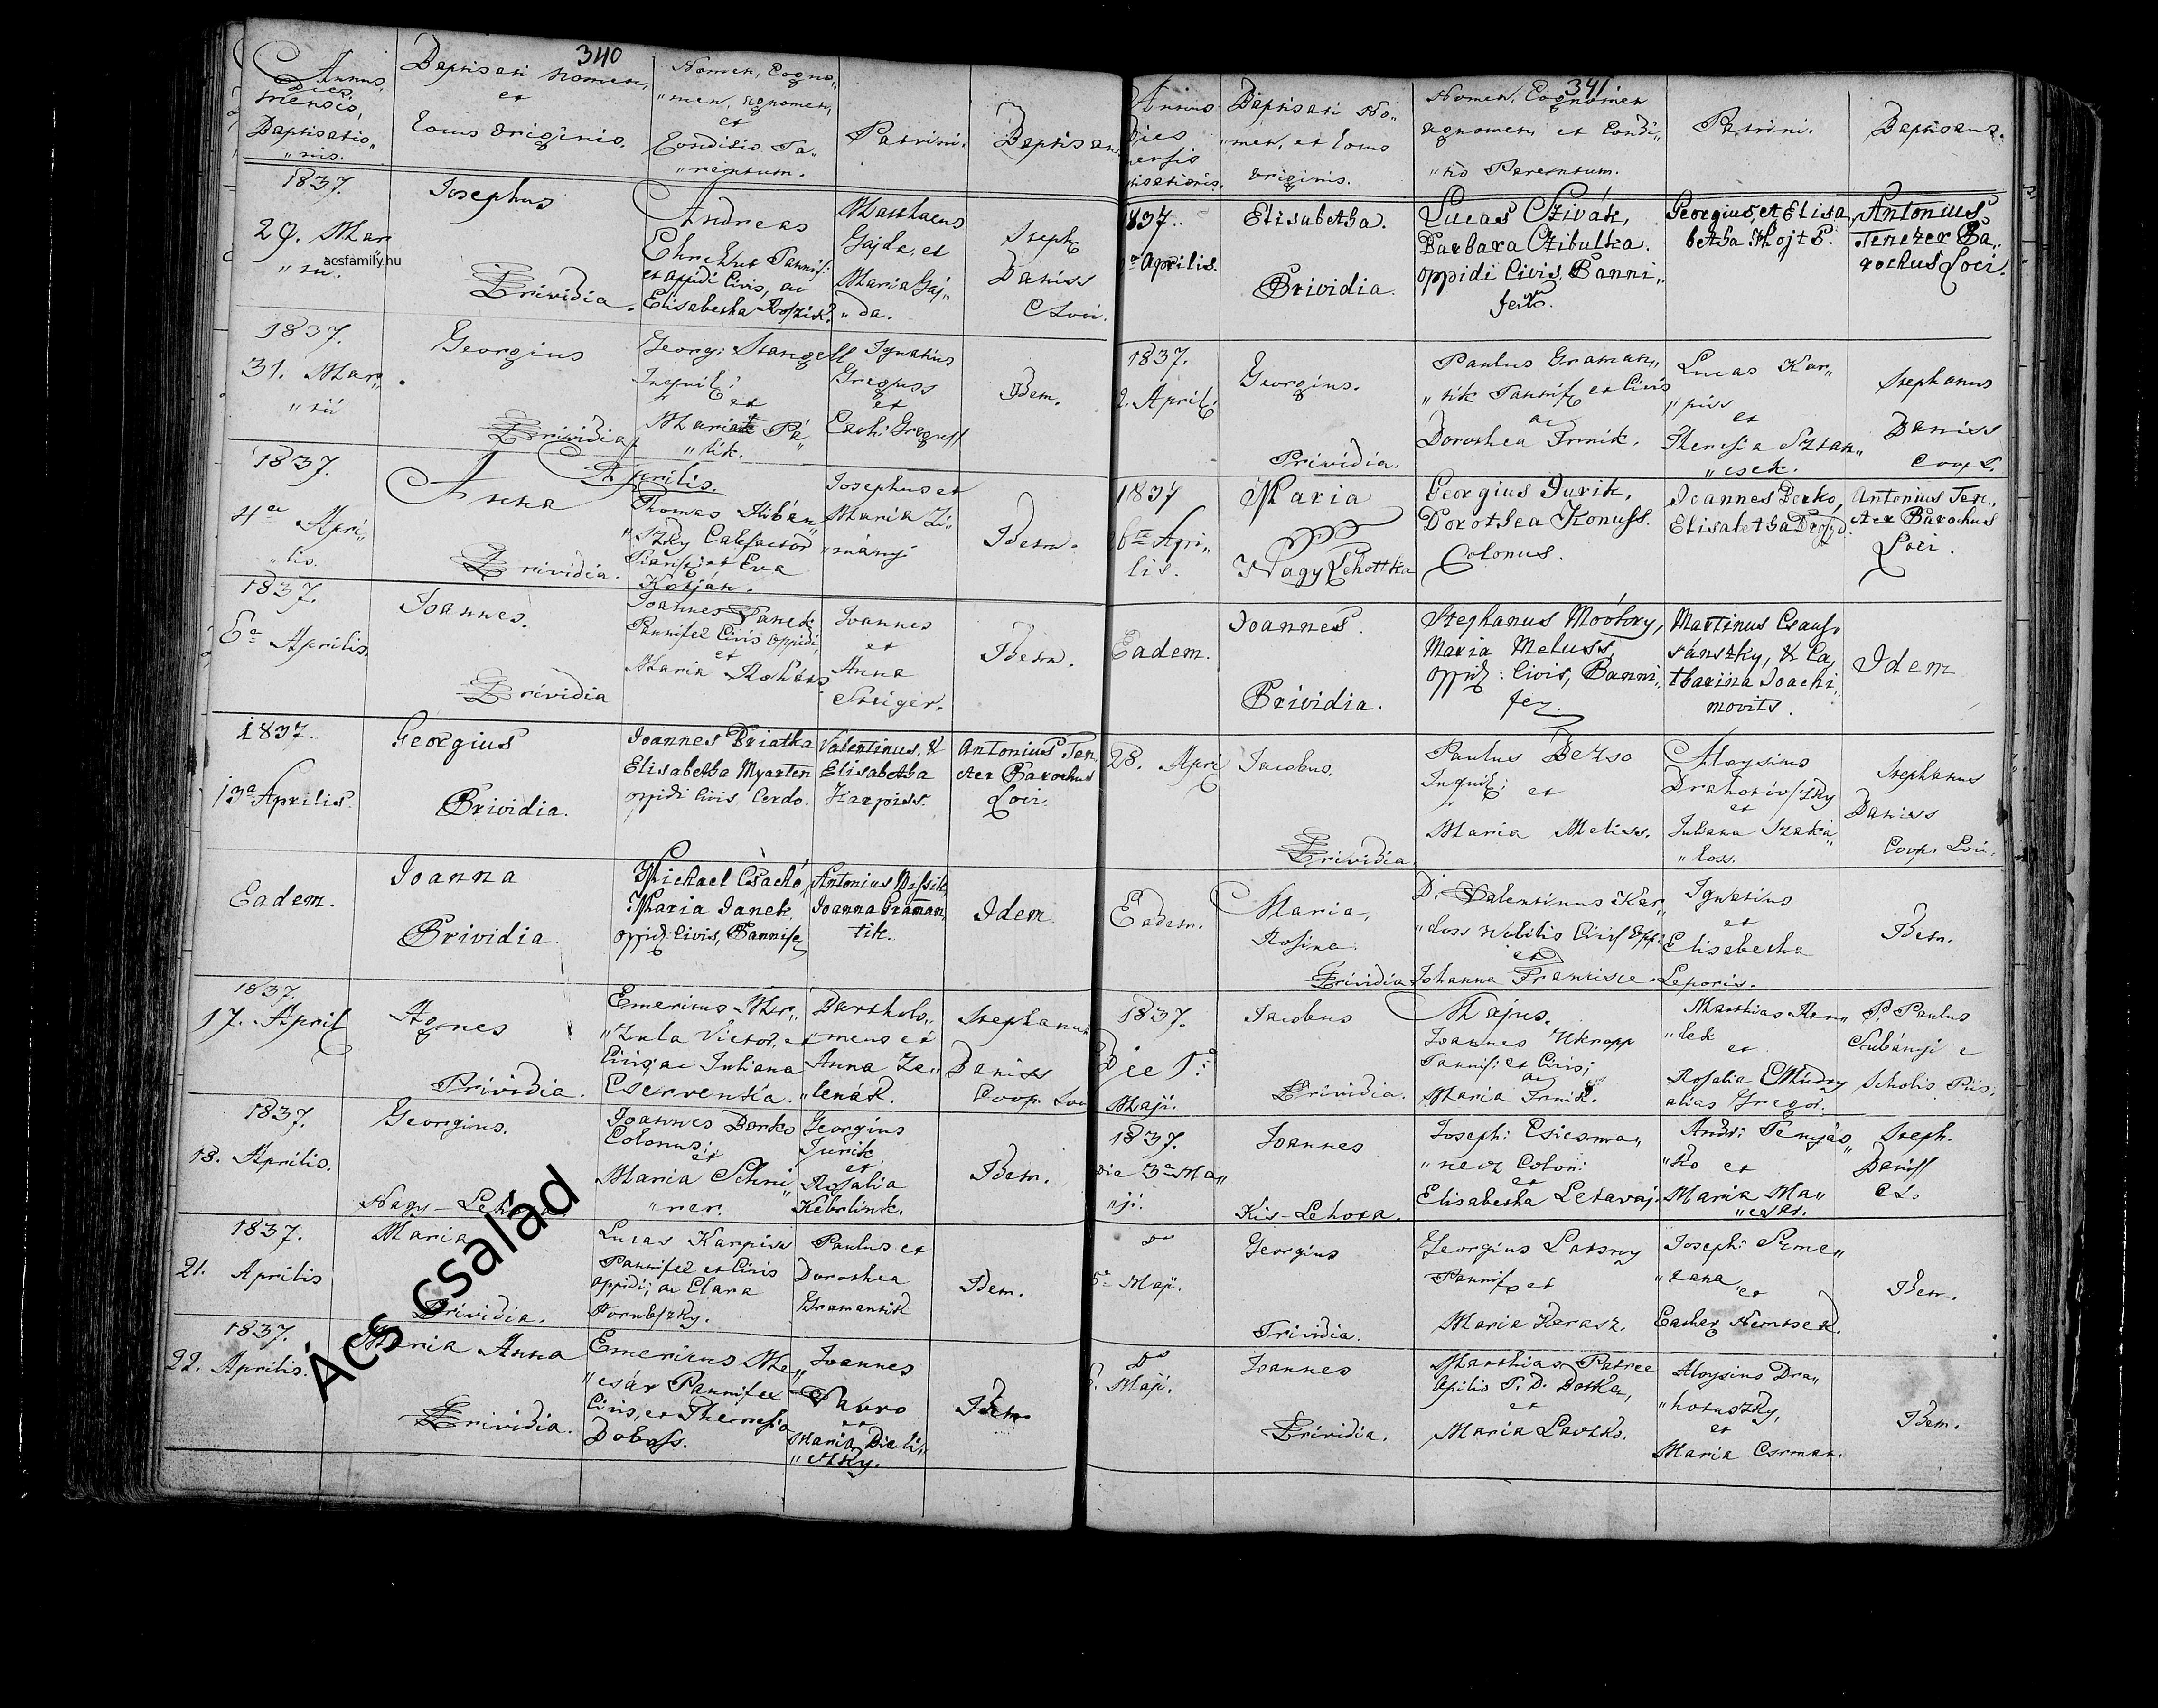 340
Annus,
Dies
mensis,
Baptisatio„
„nis.
Baptisati nomen,
et
Locus originis.
Nomen, Cogno„
„men, agnomen,
et
Conditio Pa„
„rentum.
Patrini.
Baptisans
1837.
29. Mar
acsfamily.hu
Josephus
Prividia.
Andreas
Pannif:
et oppidi Civis, ac
Elisabetha
Matthaeus
Gajda, et
Maria Gaj„
„da.
Steph
Daniss
C Loci.
1837.
31. Mar„
„tii
Georgius
Prividia
Georg: Stangel
Inquil:
et
Maria
„lik.
Ignatius
Greguss
et
Cath: Greguss
Idem.
Aprilis.
1837.
4a Apri„
„lis.
Anna
Prividia.
Thomas
„szky Calefactor
et Eva
Josephus et
Maria Zi„
„mányi
Idem.
1837.
6a Aprilis.
Joannes.
Prividia
Joannes Janek
Pannifex Civis Oppidi
et
Maria
Joannes
et
Anna
Steiger.
Idem.
1837.
13a Aprilis.
Georgius
Prividia.
Joannes Briatka
Elisabetha
oppidi Civis, Cerdo.
Valentinus, &
Elisabetha
Karpiss.
Antonius Ten„
Parochus
Loci.
Eadem.
Joanna
Prividia.
Michael Csachó,
Maria Janek,
oppid: Civis, Pannifex
Antonius
Joanna Graman„
tik.
Idem
1837.
17. April
Agnes
Prividia.
Emericus Mer„
„Zula Victor, et
Civis, ac Juliana
Cservenka.
Bartholo„
„meus et
Anna Ze„
„lenák.
Stephanus
Daniss
Coop. Loci
1837.
18. Aprilis.
Georgius.
Nagy-Lehota.
Joannes Borko
Colonus;
et
Maria Schni„
„rer.
Georgius
Jurik,
et
Rosalia
Kebrlink.
Idem.
1837.
21. Aprilis
Maria
Prividia.
Lucas Karpiss
Pannifex et Civis
Oppidi; ac Clara
Paulus et
Dorothea
Gramantik
Idem.
1837.
22. Aprilis.
Maria Anna
Prividia.
Emericus Me„
„csár Pannifex
Civis, et Theresia
Doboss.
Joannes
Pauro
et
Maria
Idem
Ács család
341
Annus
Dies
Baptisati No„
„men, et Locus
originis.
Nomen, Cognomen
agnomen et Condi„
„tio Parentum.
Patrini.
Baptisans.
1837.
Aprilis.
Elisabetha.
Prividia.
Lucas Czivák,
Barbara Czibulka.
oppidi Civis, Panni„
fex.
Georgius, et Elisa„
betha
Antonius
Pa„
rochus Loci.
1837.
2. April:
Georgius.
Prividia.
Paulus Graman„
„tik Pannifex et Civis
ac
Dorothea Jrmik.
Lucas Kar„
„piss
et
Theresia Sztan„
„csek.
Stephanus
Daniss
Coop L.
1837
6ta Apri„
lis.
Maria
Nagy Lehottka
Georgius Jurik.
Dorothea Konuss.
Colonus.
Joannes Borko,
Elisabetha
Antonius Ten„
Parochus
Loci.
Eadem.
Joannes.
Prividia.
Stephanus
Maria Meluss,
oppid: Civis, Panni„
fex.
Martinus
sánszky, & Ca„
tharina Joachi„
movits.
Idem
28. April
Jacobus,
Prividia.
Paulus Bezso
Inquil: et
Maria Meliss.
Aloysius
et
Juliana Szaka„
„loss.
Stephanus
Daniss
Coop. Loci.
Eadem.
Maria,
Rosina.
Prividia
D. Valentinus Kar„
„doss Nobilis Civis Opp:
et
Johanna Francisca
Ignatius
et
Elisabetha
Leporis.
Idem.
Majus.
1837.
Die 1:
Maji.
Jacobus
Prividia.
Joannes Ukropp
Pannif: et Civis;
ac
Maria Jrmik.
Matthias
„lek
et
Rosalia
alias Gregor.
P. Paulus
Scholis Piis.
1837.
Die 3a Ma„
„ji.
Joannes
Kis-Lehota.
Joseph: Csicsma„
„necz Colon:
et
Elisabetha Letavaj.
Andr: Tenyás„
„ko et
Maria Ma„
Steph.
Daniss
CL.
Do
5a Maji.
Georgius
Prividia.
Georgius Latsny
Pannifex et
Maria Karasz.
Joseph: Sme„
„tana,
et
Esther Nemtsek.
Idem.
Do
Maji.
Joannes
Prividia.
Matthias Patree
Opilio T. D. Botka,
et
Maria Lavtsko.
Aloysius Dra„
„hotuszky,
et
Maria Csrman.
Idem.